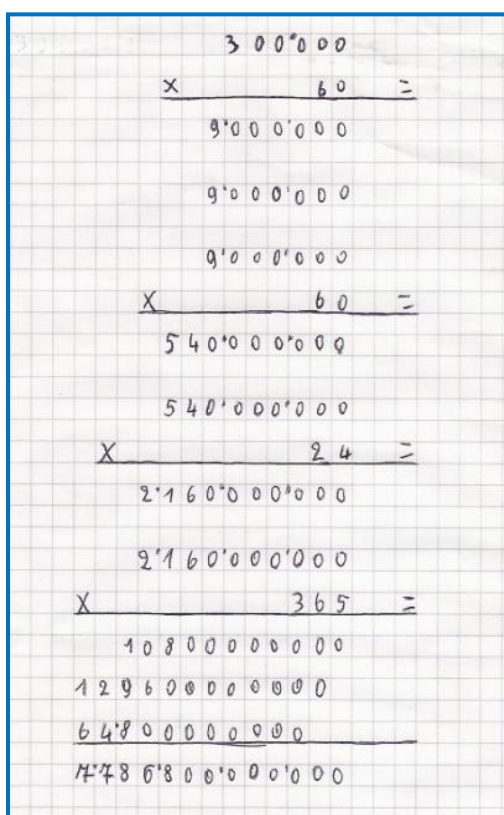 3 0 0'0 0 0
X 6 0 =
9'0 0 0'0 0 0
9'0 0 0'0 0 0
9'0 0 0'0 0 0
X 6 0 =
5 4 0'0 0 0'0 0 0
5 4 0'0 0 0'0 0 0
X 2 4 =
2'1 6 0'0 0 0'0 0 0
2'1 6 0'0 0 0'0 0 0
X 3 6 5 =
1 0 8 0 0 0 0 0 0 0 0
1 2 9 6 0 0 0 0 0 0 0 0
6 4'8 0 0 0 0 0 0 0
7'7 8 6'8 0 0'0 0 0'0 0 0